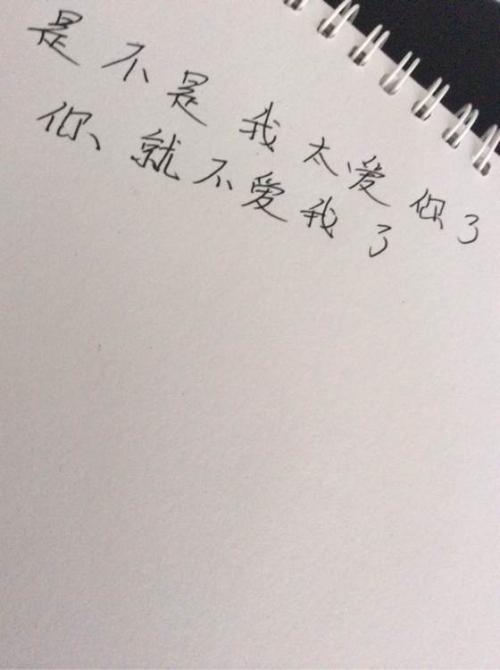 是不是我太爱你了
你就不爱我了